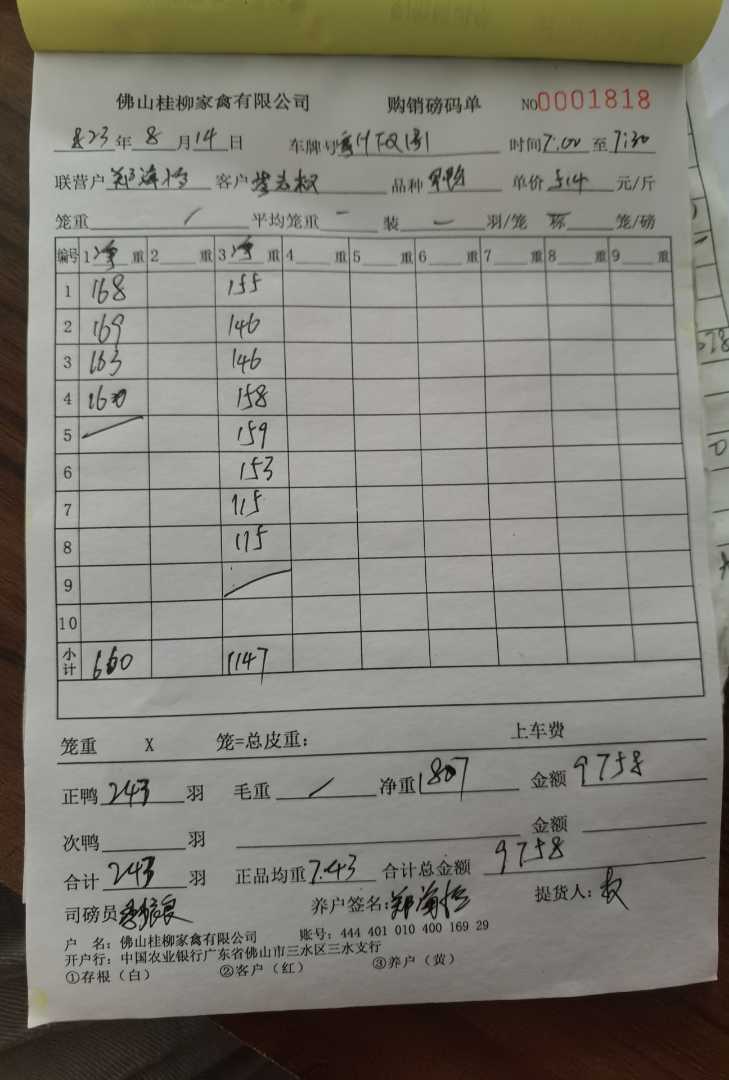 佛山桂柳家禽有限公司 购销磅码单 NO0001818
823年8月14日 车牌号 时间7:00至7:30
联营户 郑 客户 品种 单价5.4元/斤
笼重 / 平均笼重 — 装 — 羽/笼 称 笼/磅
编号 1净重 2 重 3净重 4 重 5 重 6 重 7 重 8 重 9 重
1 168 155
2 169 146
3 163 146
4 160 158
5 / 159
6 153
7 115
8 115
9 /
10
小计 660 1147
笼重 X 笼=总皮重: 上车费
正鸭243羽 毛重 / 净重1807 金额9758
次鸭 羽 金额
合计243羽 正品均重7.43 合计总金额9758
司磅员 养户签名:郑 提货人:权
户 名:佛山桂柳家禽有限公司 账号:444 401 010 400 169 29
开户行:中国农业银行广东省佛山市三水区三水支行
①存根(白) ②客户(红) ③养户(黄)